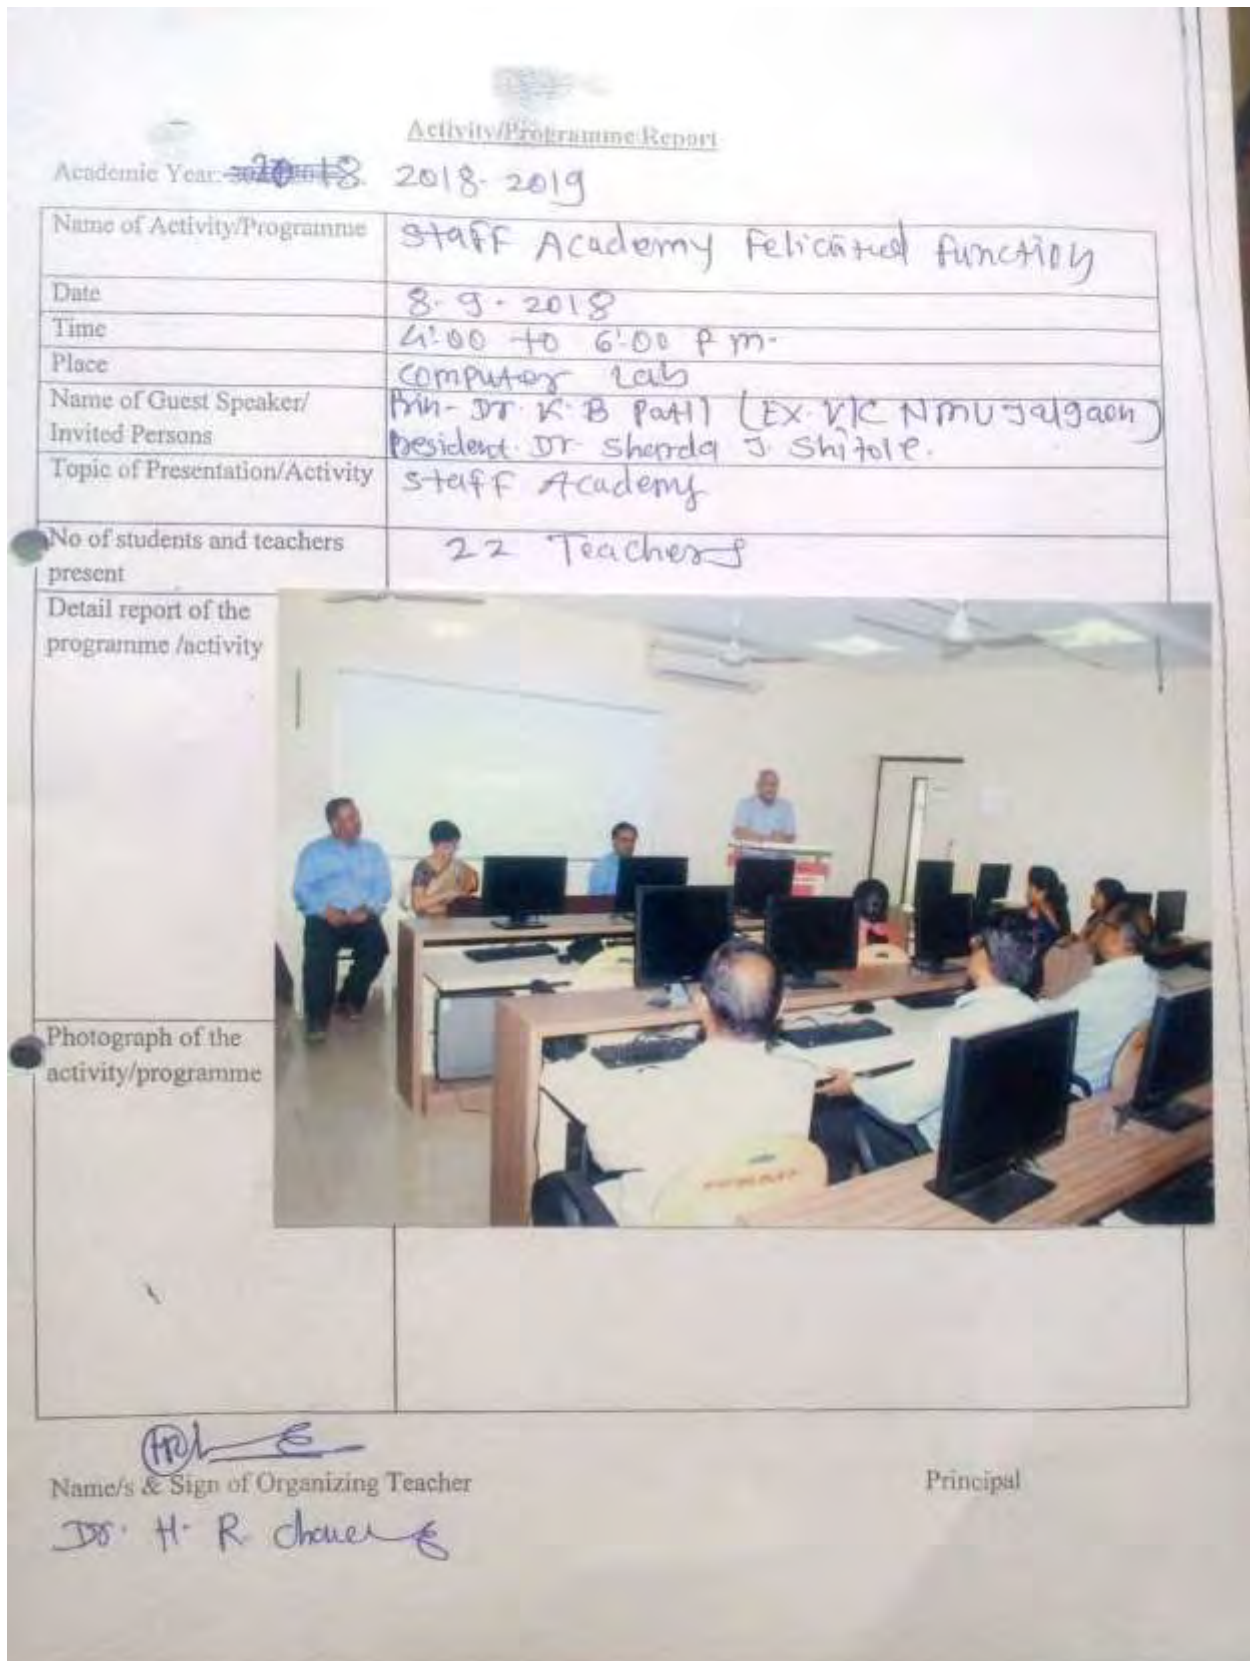 Activity/Programme Report
Academic Year: 2018-2019
Name of Activity/Programme
Staff Academy Felicited function
Date
8-9-2018
Time
4:00 to 6:00 P m.
Place
computer Lab
Name of Guest Speaker/
Invited Persons
Prin- Dr. K. B Patil (EX. V/C NMU Jalgaon)
President. Dr. Sharda J. Shitole.
Topic of Presentation/Activity
Staff Academy
No of students and teachers
present
22 Teachers
Detail report of the
programme /activity
Photograph of the
activity/programme
Name/s & Sign of Organizing Teacher
Principal
Dr. H. R.